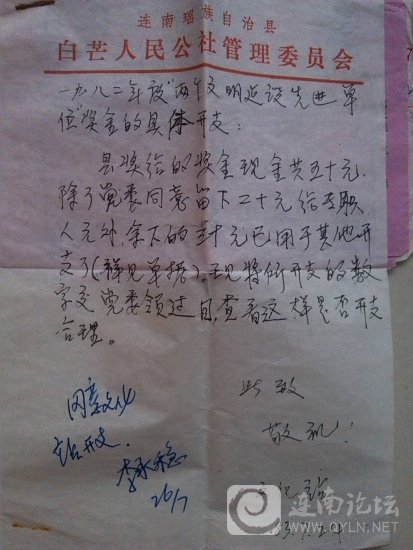 连南瑶族自治县
白芒人民公社管理委员会
一九八二年度"两个文明建设先进单
位"奖金的具体开支:
县奖给的奖金现金共五十元,
除了党委同意留下二十元给专职
人元外,余下的三十元已用于其他开
支了(祥见单据)。现将所开支的数
字交党委领过目,查看这样是否开支
合理。
此致
敬礼!
文化站
83.7.24
同意文化
站开支.
李承稳
26/7
连南论坛
WWW.GYLN.NET